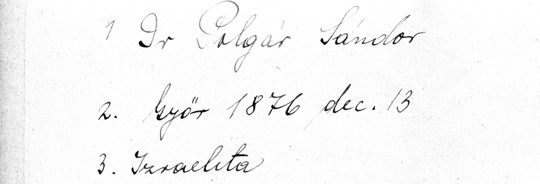 1 Dr Polgár Sándor
2. Győr 1876 dec. 13
3. Izraelita